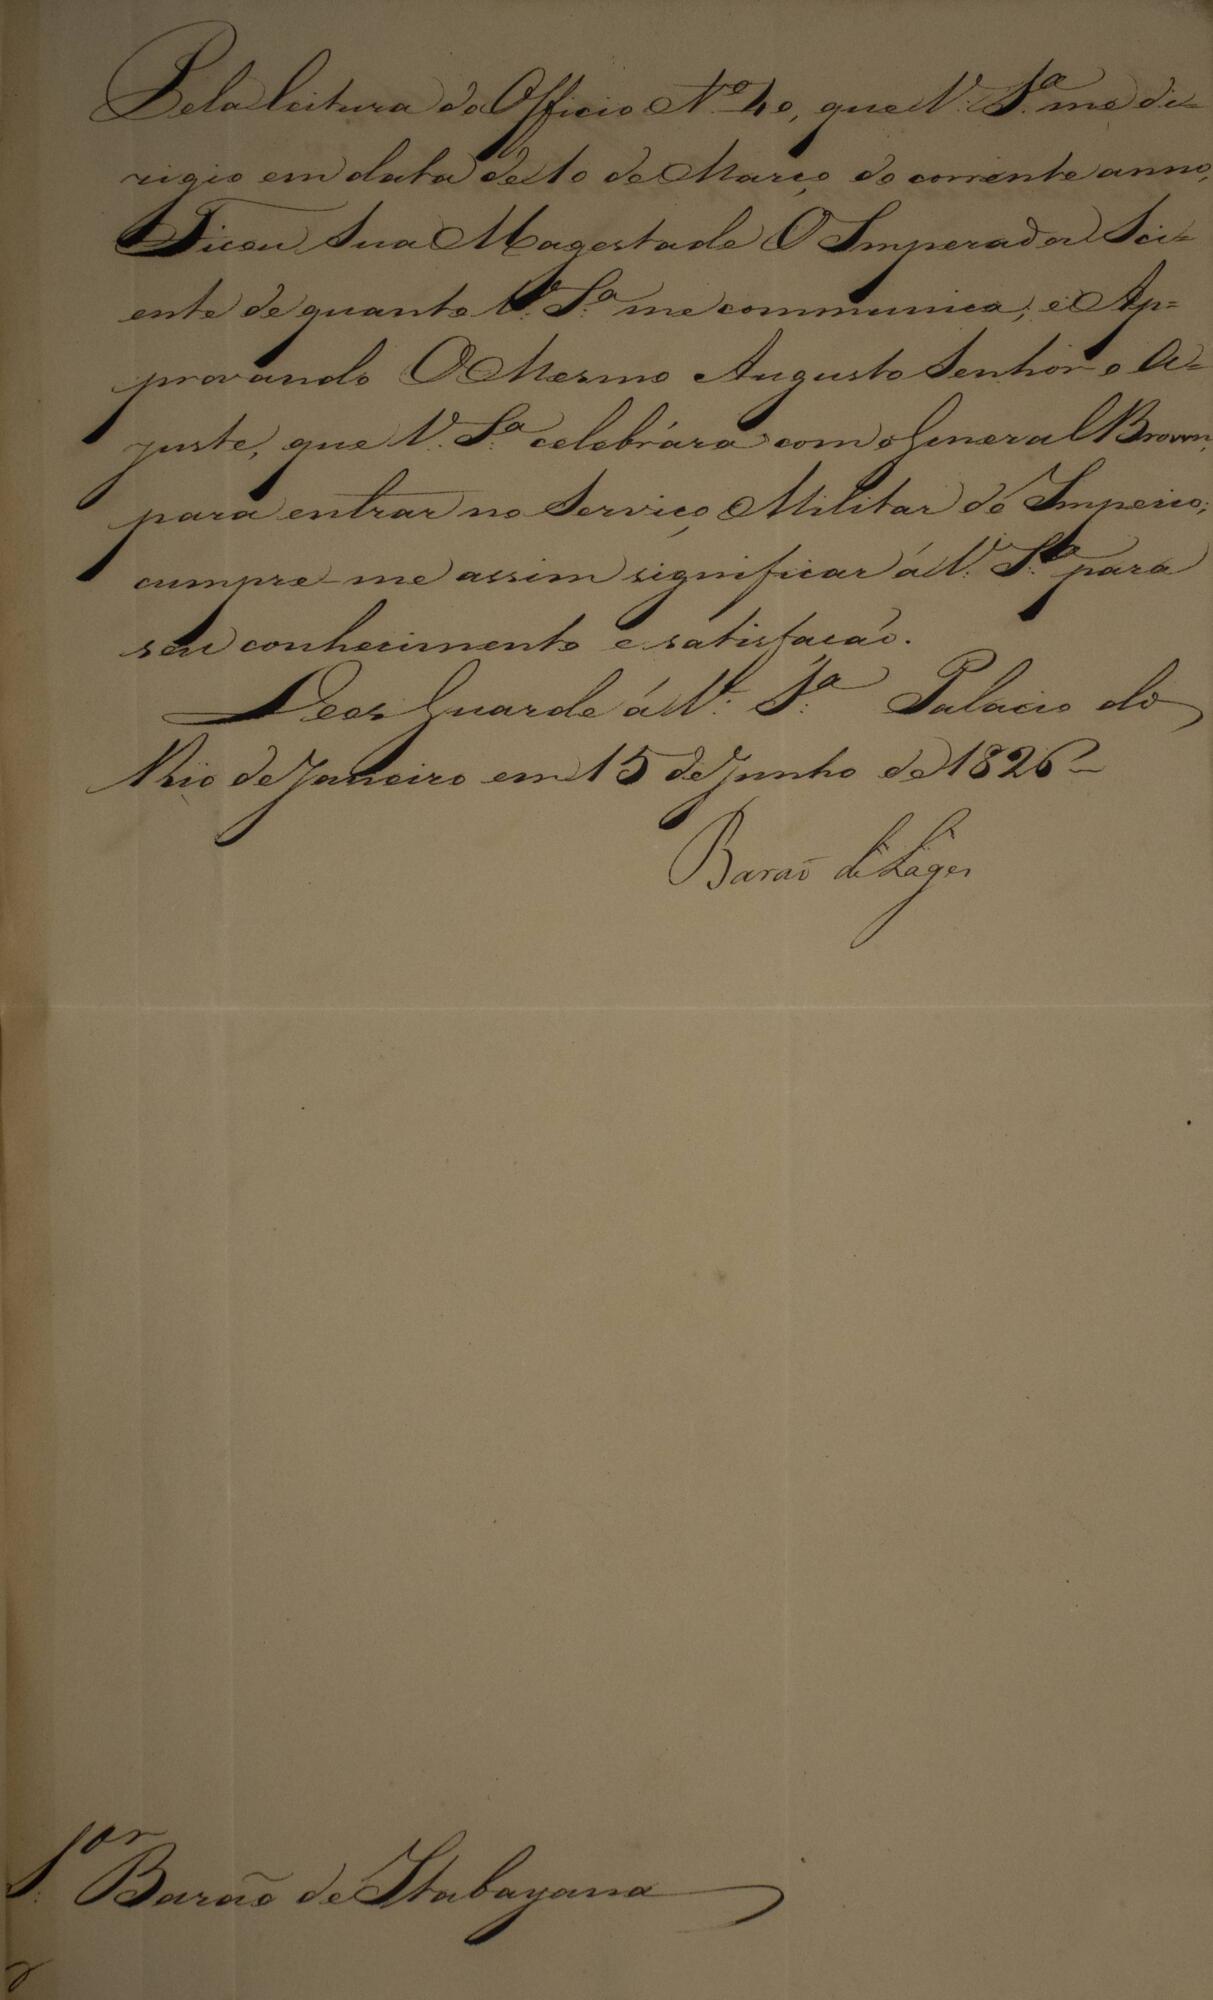 Pela leitura do Officio Nº 40, que V. Sª me di=
rigio em data de 10 de Março do corrente anno,
Ficou Sua Magestade O Imperador Sci=
ente de quanto V. Sª me communica; e Ap=
provando O Mesmo Augusto Senhor o A=
juste, que V. Sª celebrára com o General Brown,
para entrar no Serviço Militar do Imperio;
cumpre-me assim significar á V. Sª para
seu conhecimento e satisfação.
Deos Guarde á V. Sª Palacio do
Rio de Janeiro em 15 de Junho de 1826
Barão de Lages
Sor Barão de Itabayana